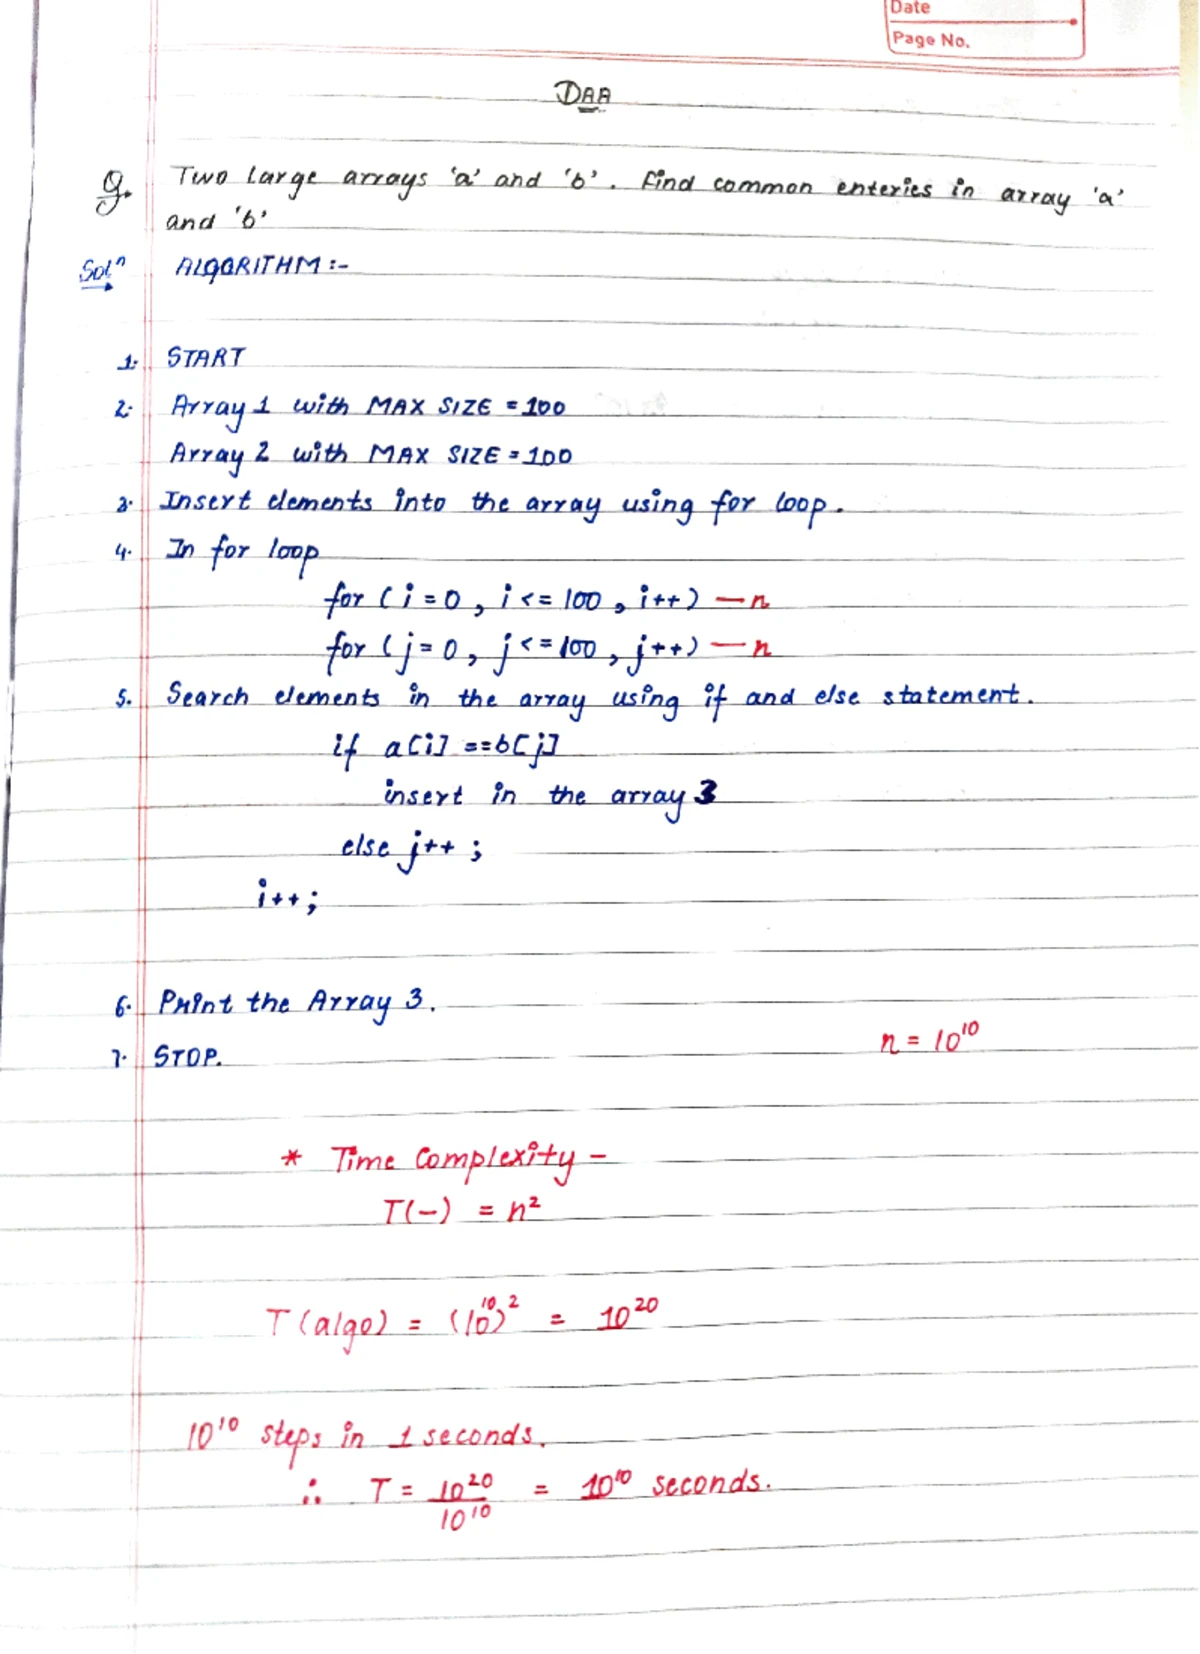 Date
Page No.
DAA
Q. Two large arrays 'a' and 'b'. Find common enteries in array 'a'
and 'b'
Solⁿ ALGORITHM :-
1. START
2. Array 1 with MAX SIZE = 100
Array 2 with MAX SIZE = 100
3. Insert elements into the array using for loop.
4. In for loop
for (i = 0, i <= 100, i++) — n
for (j = 0, j <= 100, j++) — n
5. Search elements in the array using if and else statement.
if a[i] == b[j]
insert in the array 3
else j++ ;
i++ ;
6. Print the Array 3.
7. STOP.
n = 10¹⁰
* Time Complexity -
T(-) = n²
T(algo) = (10¹⁰)² = 10²⁰
10¹⁰ steps in 1 seconds.
∴ T = 10²⁰/10¹⁰ = 10¹⁰ seconds.